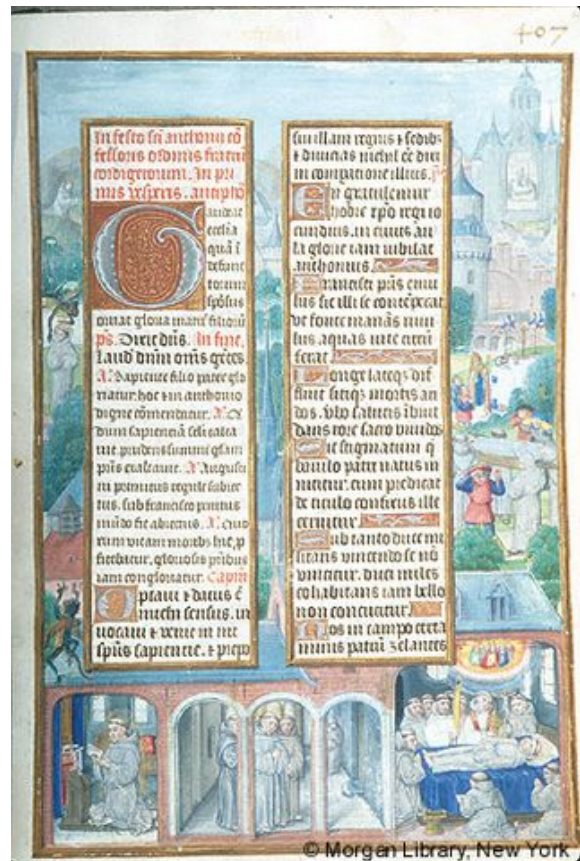 407
In festo sci anthonii cō
fessoris ordinis fratrū
cordigerorum. In pri
mis vesperis. antipho
Gaudeat
ecclia
quā ī
defunc
torum
sponsus
ornat gloria matrē filiorū
ps. Dixit dns. In fine.
Laud dnm oms gētes.
A. Sapiente filio pater glo
riatur. hoc in anthonio
digne cōmendatur. A. Qi
dum sapienciā
me. prudens summi
prīs A. Augusti
ni primitus regule subiec
tus. sub francisco penitus
mūdo fit abiectus. A. Quo
rum vitam moribus hic
gloriosis
iam congloriatur. Capitl
Optaui & datus ē
michi sensus. in
uocaui & venit in me
spūs sapiencie. & prepo
sui illam regnis & sedibz
& diuicias nichil eē duxi
in compatione illius.
En gratulemur
hodie xpo regi io
cundius. in ciues au
la glorie iam iubilat
anthonius.
Francisci prīs emu
lus sic illi se
ut fonte manās
lus aquas inte
ferat
Longe lateqz
fluit sitiqz mortis an
dos.
dans rore sacro
stigmatum q
baiulo patre natus in
nititur. cum predicat
de titulo confixus ille
cernitur.
Sub tanto duce mi
litans vincendo se nō
vincitur. duci miles
cohabitans iam bello
non concutitur.
Nos in campo certa
minis patrū zelantes
© Morgan Library, New York